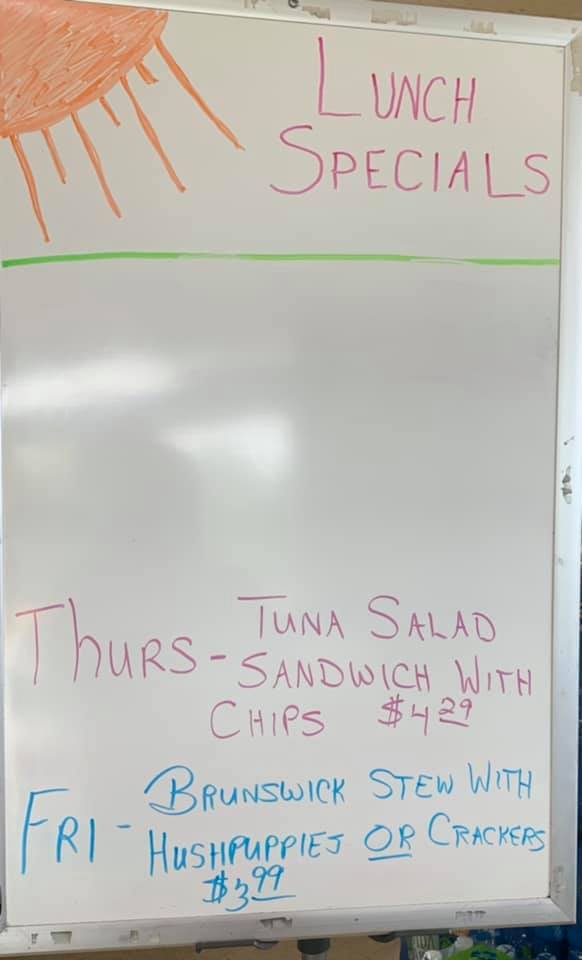 LUNCH
SPECIALS
THURS - TUNA SALAD
SANDWICH WITH
CHIPS $4.29
FRI - BRUNSWICK STEW WITH
HUSHPUPPIES OR CRACKERS
$3.99